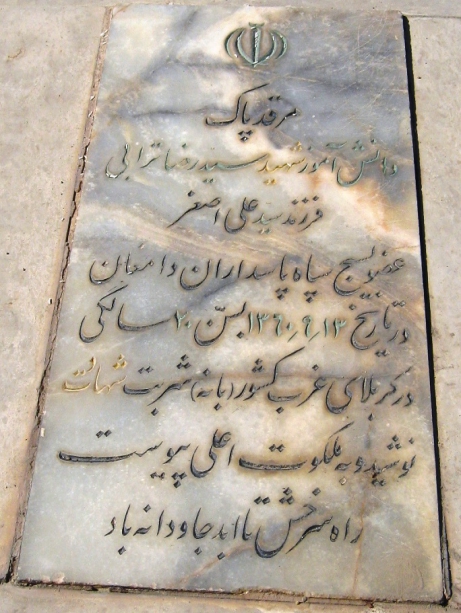 مرقد پاک
دانش آموز شهید سید رضا ترابی
فرزند سید علی اصغر
عضو بسیج سپاه پاسداران دامغان
در تاریخ ۱۳۶۰٫۹٫۱۳ بسن ۲۰ سالگی
در کربلای غرب کشور (بانه) شربت شهادت
نوشید و به ملکوت اعلی پیوست
راه سرخش تا ابد جاودانه باد